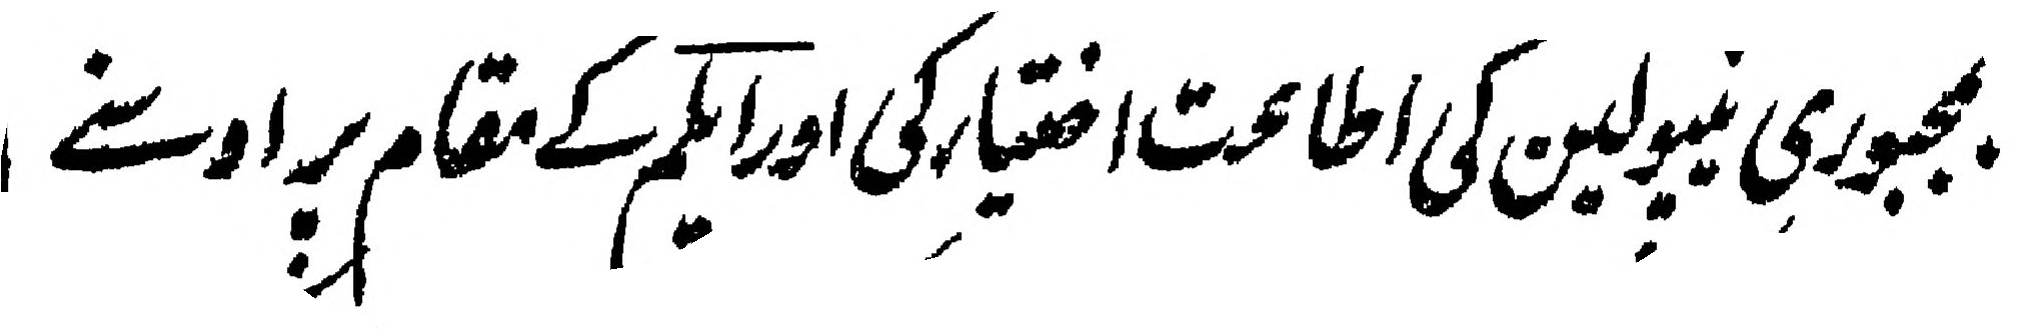 بمجبوری نیپولین کی اطاعت اختیار کی اور ایکم کے مقام پر اوسنے